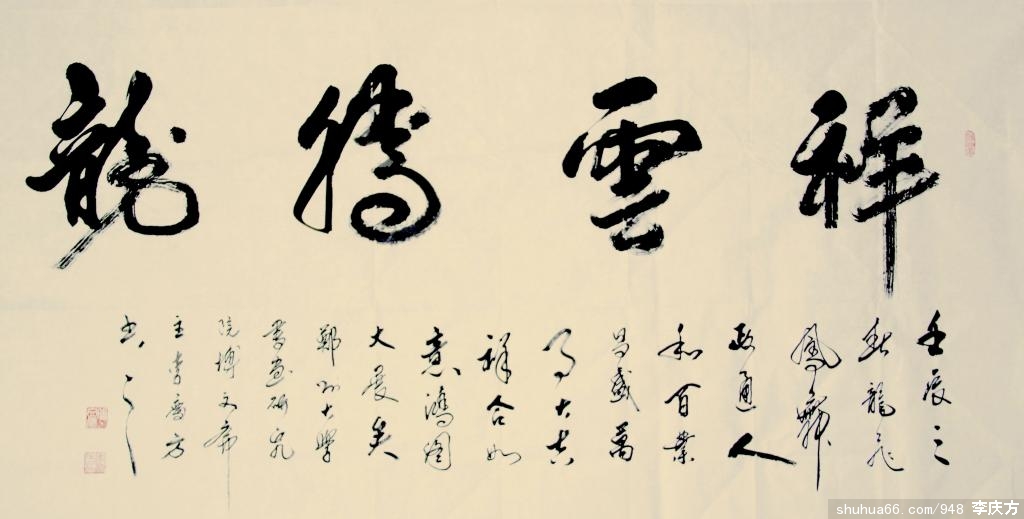 祥雲騰龍
壬辰之
秋龍飛
鳳舞
政通人
和百業
昌盛萬
事大吉
祥合如
意鴻圖
大展矣
鄭州大學
書畫研究
院博文齋
主李慶方
書之
shuhua66.com/948 李庆方